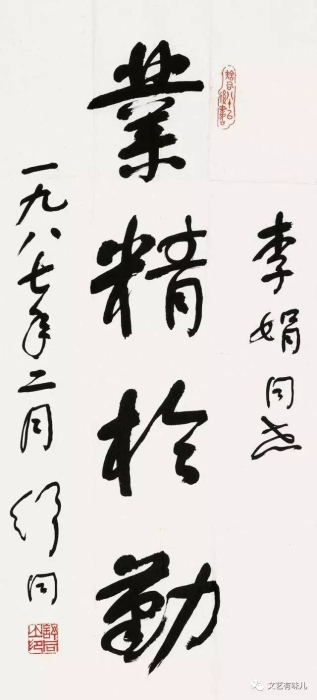 李娟同志
業精於勤
一九八七年二月 舒同
文艺有味儿